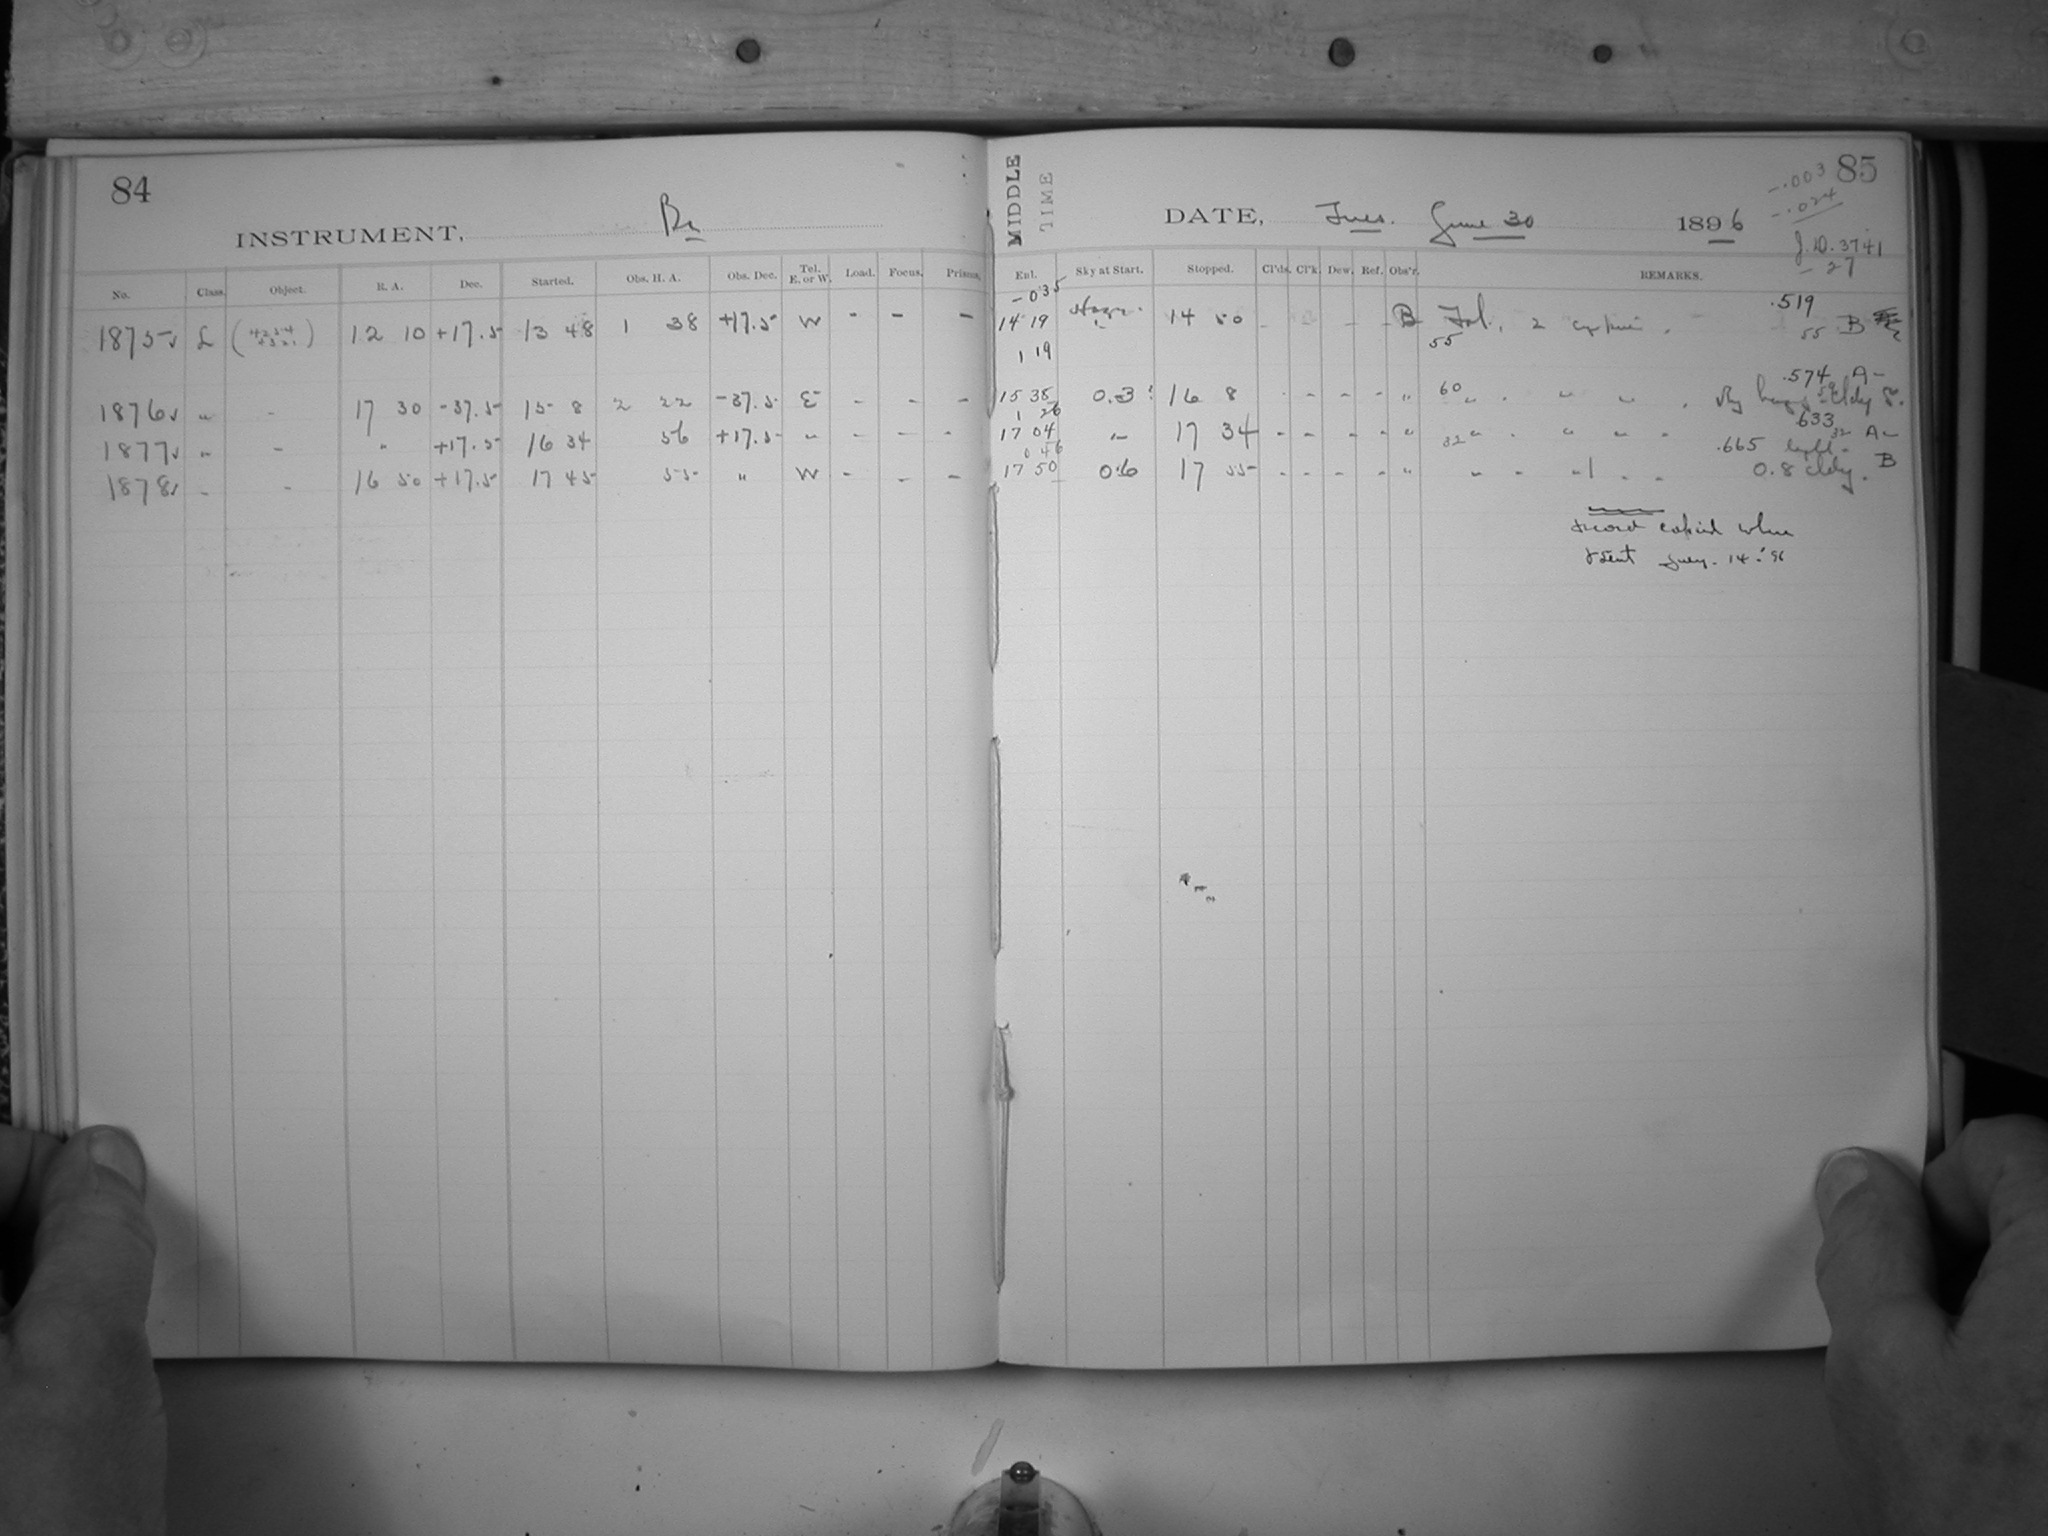 84
INSTRUMENT,
No. Class. Object. R. A. Dec. Started. Obs. H. A. Obs. Dec. Tel. E. or W. Load. Focus. Prisms.
1875 £ 12 10 +17.5 13 48 1 38 +17.5 W - - -
1876 " - 17 30 -37.5 15 8 2 22 -37.5 E - - -
1877 " - " +17.5 16 34 56 +17.5 " - - -
1878 - - 16 50 +17.5 17 45 55 " W - - -
MIDDLE TIME
85
-.003
-.024
DATE, Tues. June 30 1896
J.D. 3741
- 27
Ext. Sky at Start. Stopped. Cl'ds. Cl'k. Dew. Ref. Obs'r. REMARKS.
-035
.519
14 19 14 50 - - - - B 2 55 B
1 19 55
.574 A-
15 35 0.3 16 8 - - - - " 60 " " "
1 26 .633
17 04 " 17 34 - - - - " 32 " " " 32 A-
0 46 .665
17 50 0.6 17 55 - - - - " 0.8 cldy. B
record copied when
sent July. 14.'96